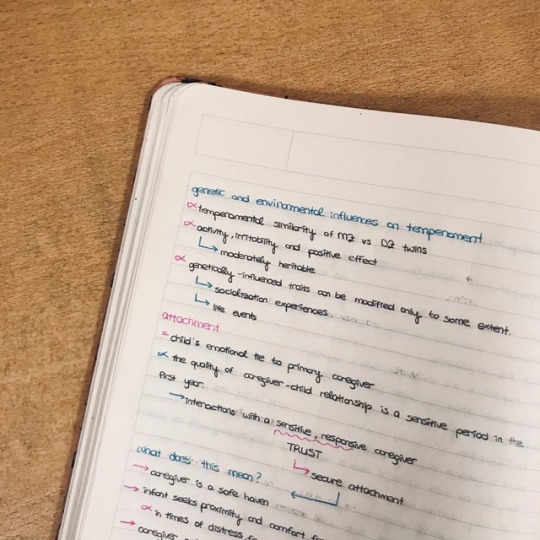 genetic and enviromental influences on temperament
∝ temperamental similarity of MZ vs DZ twins
∝ activity, irritability and positive effect
↳ moderately heritable
∝ genetically-influenced traits can be modified only to some extent.
↳ socialization experiences
↳ life events
attachment
= child's emotional tie to primary caregiver
∝ the quality of caregiver-child relationship is a sensitive period in the
first year.
→ interactions with a sensitive, responsive caregiver
TRUST
↳ secure attachment
what does this mean?
→ caregiver is a safe haven
→ infant seeks proximity and comfort
∝ in times of distress
→ caregiver